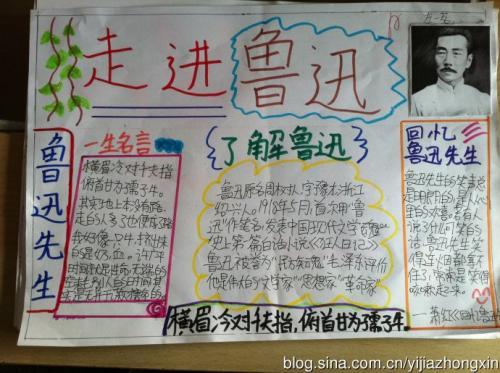 走进鲁迅
鲁迅先生
一生名言
横眉冷对千夫指
俯首甘为孺子牛。
其实地上本没有路,
走的人多了也便成了路
我好像一只牛,
了解鲁迅
鲁迅原名周树人,字豫才,浙江
绍兴人。1918年5月,首次用“鲁
迅”作笔名,发表中国现代文学
史上第一篇白话小说《狂人日记》
鲁迅被誉为“民族魂”毛泽东评价
他是伟大的“文学家”“思想家”“革命家”
回忆
鲁迅先生
鲁迅先生的笑声
是明朗的,是从心
里的欢喜。若有人
说了什么可笑的
话,鲁迅先生笑
得连烟都拿不
住了,常常是笑得
咳嗽起来。
—萧红《回忆鲁迅
横眉冷对千夫指,俯首甘为孺子牛。
blog.sina.com.cn/yijiazhongxin